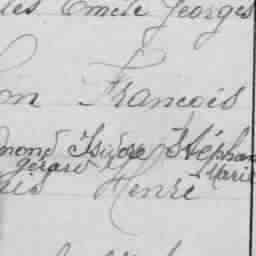 les Emile Georges
on François
mond Isidore Stéphan
Gérard Marie
is Henri